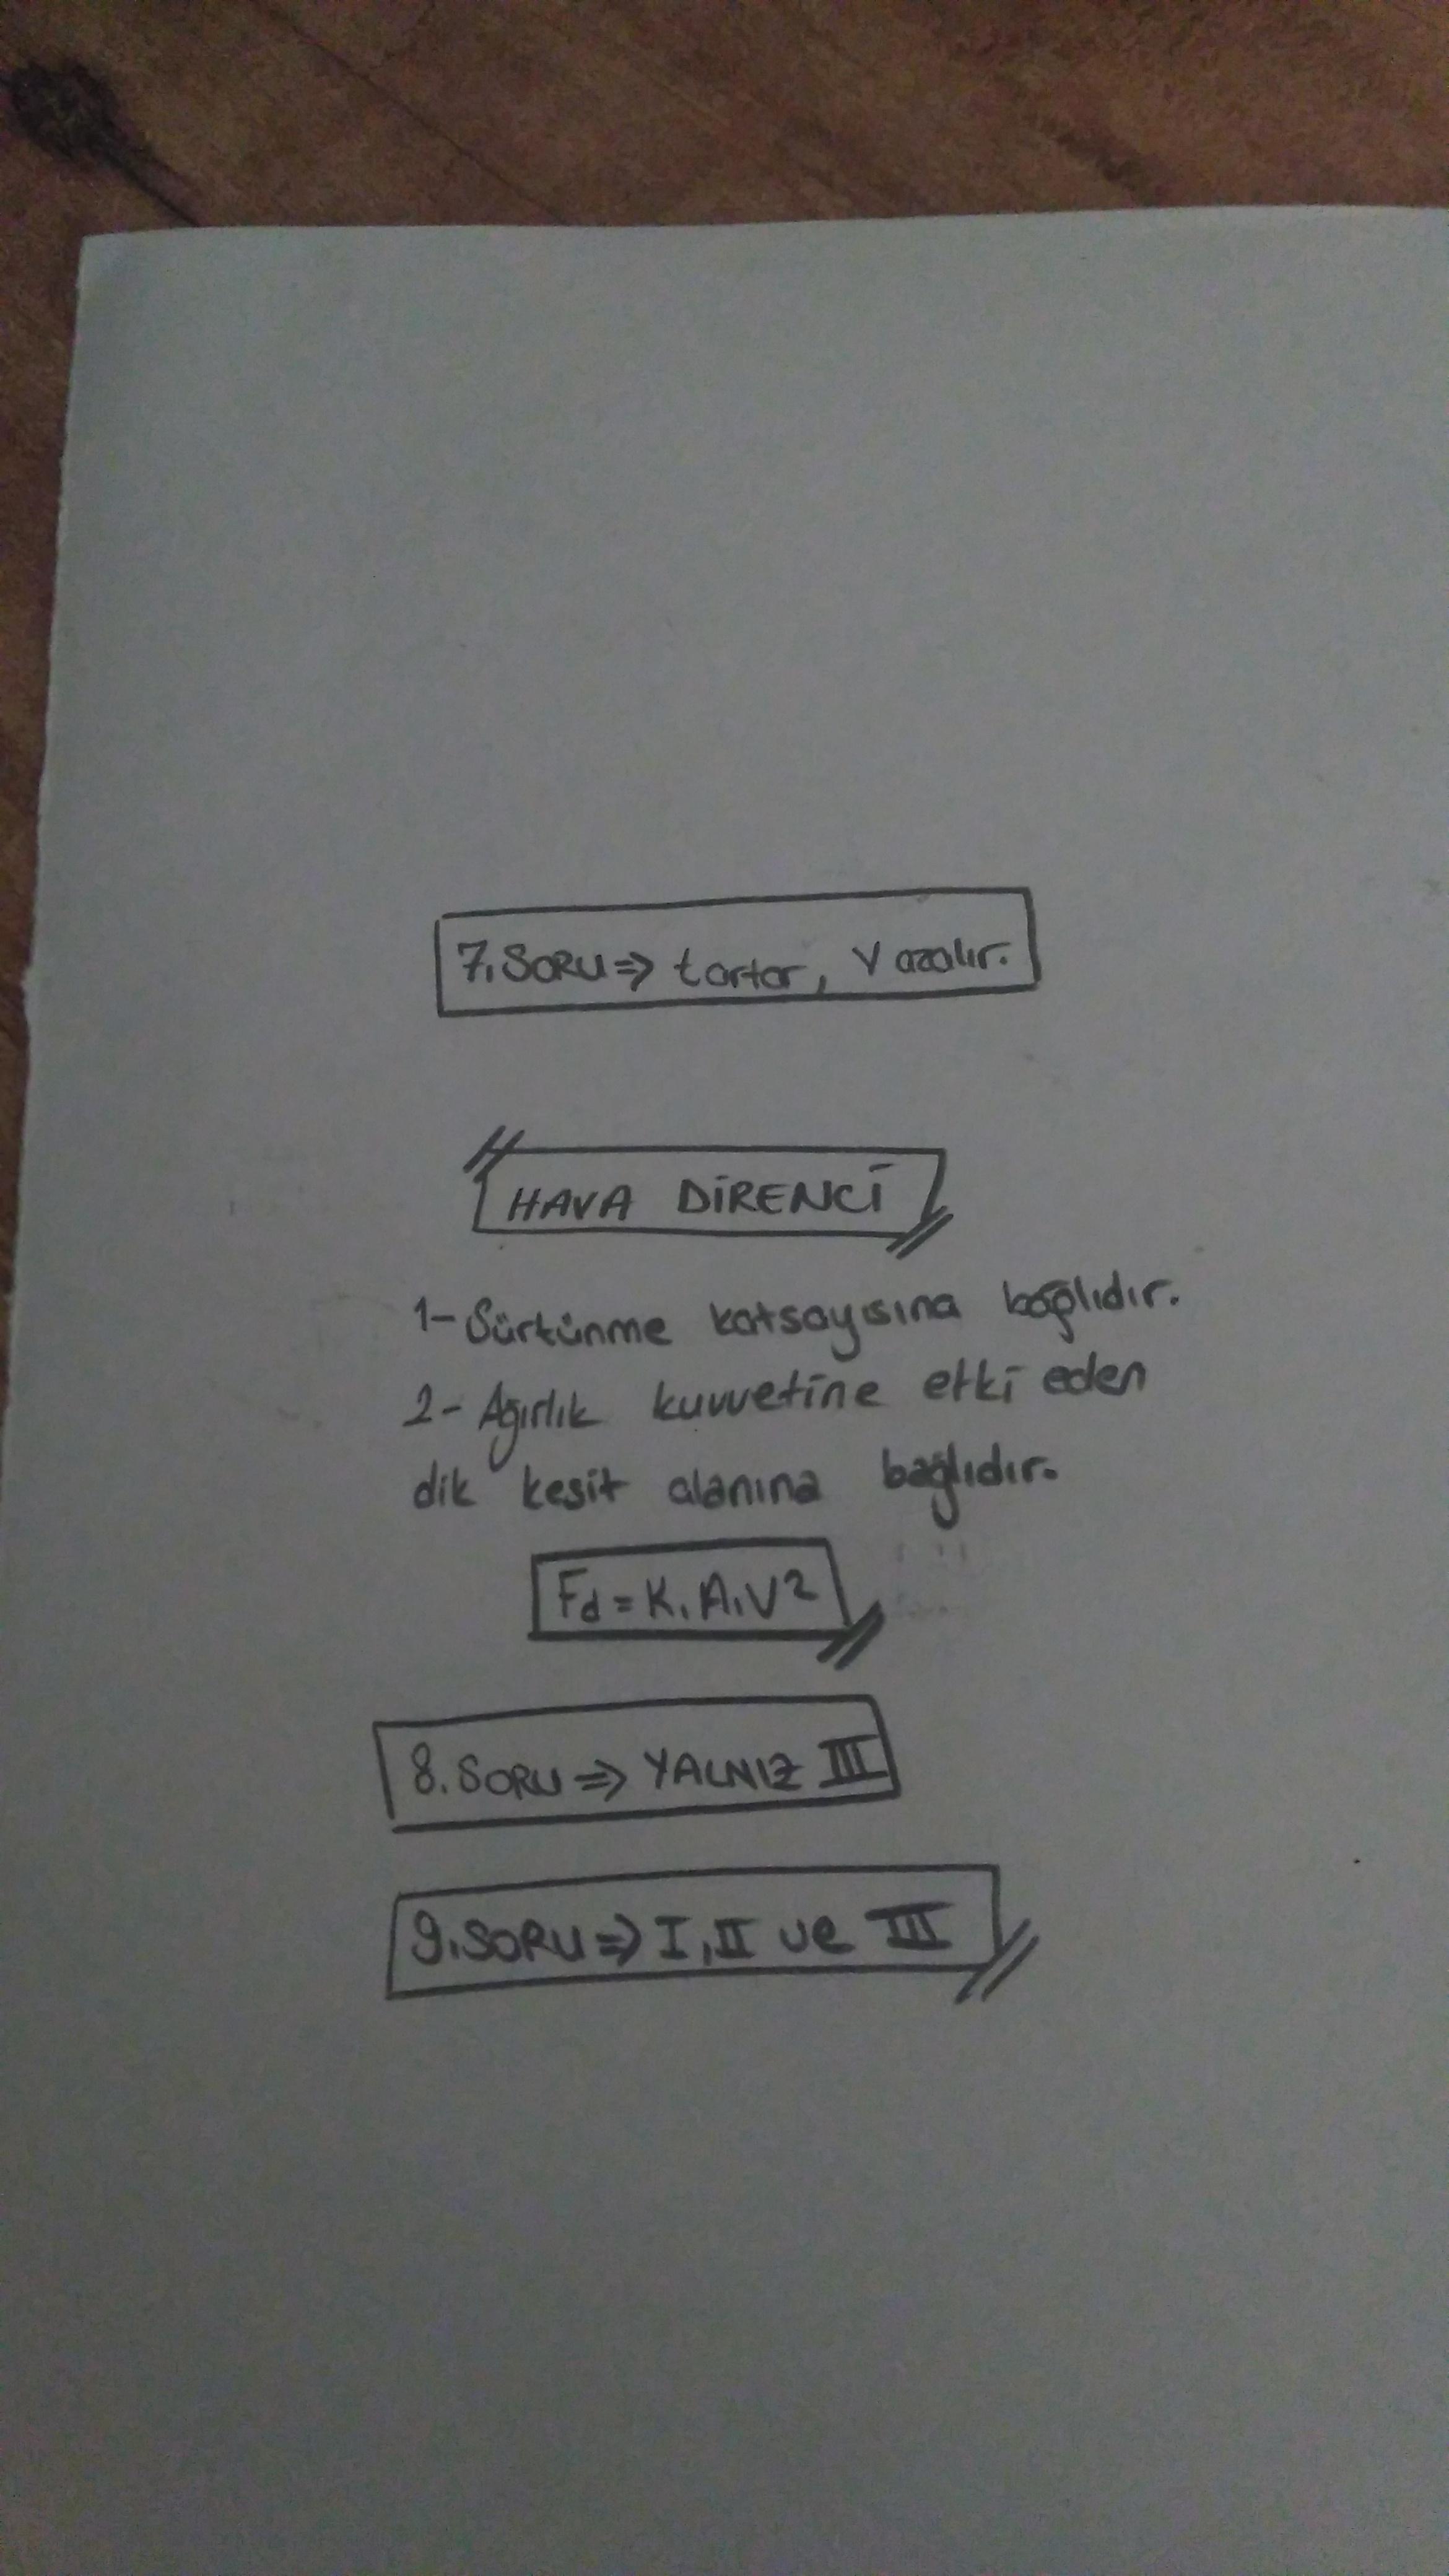 7. SORU ⇒ t artar, V azalır.
HAVA DİRENCİ
1- Sürtünme katsayısına bağlıdır.
2- Ağırlık kuvvetine etki eden
dik kesit alanına bağlıdır.
Fd = K.A.V²
8. SORU ⇒ YALNIZ III
9. SORU ⇒ I, II ve III